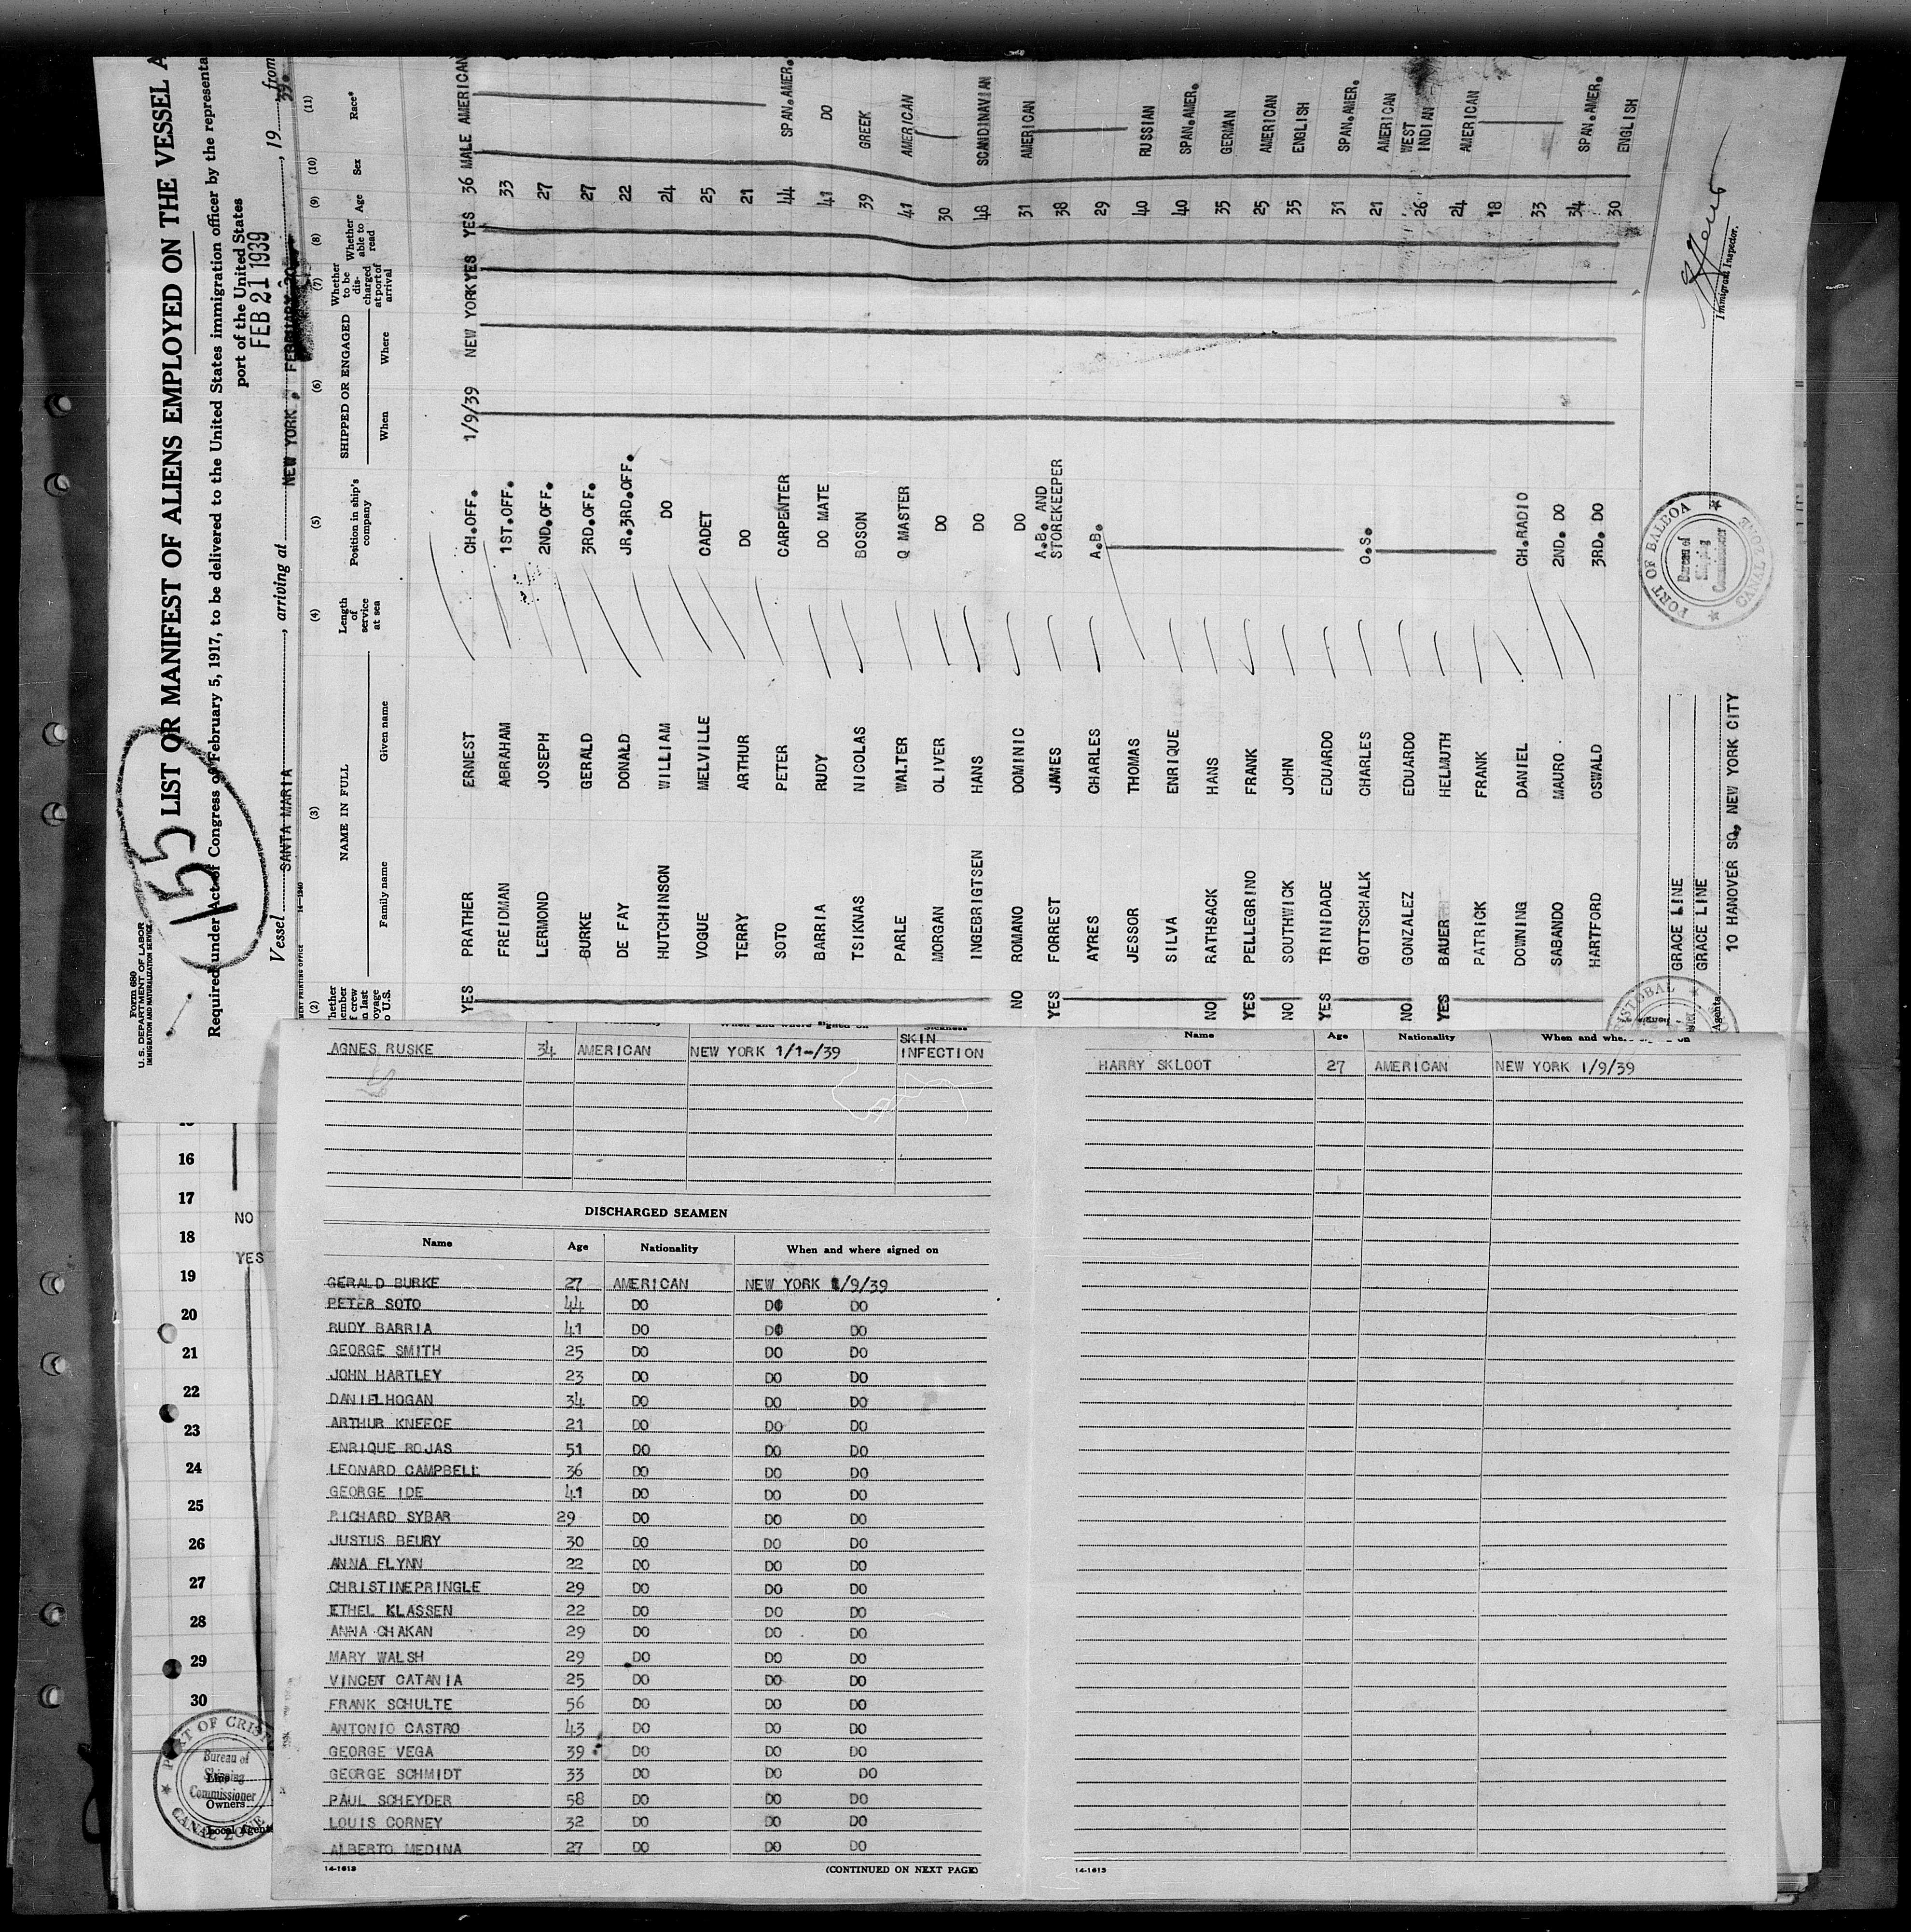 Form 680
U. S. DEPARTMENT OF LABOR
IMMIGRATION AND NATURALIZATION SERVICE
155
LIST OR MANIFEST OF ALIENS EMPLOYED ON THE VESSEL A
Required under Act of Congress of February 5, 1917, to be delivered to the United States immigration officer by the representa
port of the United States
FEB 21 1939
Vessel SANTA MARIA, arriving at NEW YORK, FEBRUARY 20, 19 39. from
14-1240
(2) (3) (4) (5) (6) (7) (8) (9) (10) (11)
NAME IN FULL Length of service at sea Position in ship's company SHIPPED OR ENGAGED Whether to be discharged at port of arrival Whether able to read Age Sex Race*
Family name Given name When Where
YES PRATHER ERNEST CH.OFF. 1/9/39 NEW YORK YES YES 36 MALE AMERICAN
FREIDMAN ABRAHAM 1ST.OFF. 33
LERMOND JOSEPH 2ND.OFF. 27
BURKE GERALD 3RD.OFF. 27
DE FAY DONALD JR.3RD.OFF. 22
HUTCHINSON WILLIAM DO 24
VOGUE MELVILLE CADET 25
TERRY ARTHUR DO 21
SOTO PETER CARPENTER 44 SPAN.AMER.
BARRIA RUDY DO MATE 41 DO
TSIKNAS NICOLAS BOSON 39 GREEK
PARLE WALTER Q MASTER 41 AMERICAN
MORGAN OLIVER DO 30
INGEBRIGTSEN HANS DO 48 SCANDINAVIAN
NO ROMANO DOMINIC DO 31 AMERICAN
YES FORREST JAMES A.B. AND STOREKEEPER 38
AYRES CHARLES A.B. 29
JESSOR THOMAS 40 RUSSIAN
SILVA ENRIQUE 40 SPAN.AMER.
NO RATHSACK HANS 35 GERMAN
YES PELLEGRINO FRANK 25 AMERICAN
NO SOUTHWICK JOHN 35 ENGLISH
YES TRINIDADE EDUARDO 31 SPAN.AMER.
GOTTSCHALK CHARLES O.S. 21 AMERICAN
NO GONZALEZ EDUARDO 26 WEST INDIAN
YES BAUER HELMUTH 24 AMERICAN
PATRICK FRANK 18
DOWNING DANIEL CH.RADIO 33
SABANDO MAURO 2ND. DO 34 SPAN.AMER.
HARTFORD OSWALD 3RD. DO 30 ENGLISH
GRACE LINE
GRACE LINE
Agents 10 HANOVER SQ, NEW YORK CITY
PORT OF BALBOA
Bureau of Shipping Commissioner
CANAL ZONE
Immigrant Inspector.
When and where signed on
AGNES RUSKE 34 AMERICAN NEW YORK 1/1-/39 SKIN INFECTION
DISCHARGED SEAMEN
Name Age Nationality When and where signed on
GERALD BURKE 27 AMERICAN NEW YORK 1/9/39
PETER SOTO 44 DO DO DO
RUDY BARRIA 41 DO DO DO
GEORGE SMITH 25 DO DO DO
JOHN HARTLEY 23 DO DO DO
DANIELHOGAN 34 DO DO DO
ARTHUR KNEECE 21 DO DO DO
ENRIQUE ROJAS 51 DO DO DO
LEONARD CAMPBELL 36 DO DO DO
GEORGE IDE 41 DO DO DO
RICHARD SYBAR 29 DO DO DO
JUSTUS BEURY 30 DO DO DO
ANNA FLYNN 22 DO DO DO
CHRISTINEPRINGLE 29 DO DO DO
ETHEL KLASSEN 22 DO DO DO
ANNA CHAKAN 29 DO DO DO
MARY WALSH 29 DO DO DO
VINCENT CATANIA 25 DO DO DO
FRANK SCHULTE 56 DO DO DO
ANTONIO CASTRO 43 DO DO DO
GEORGE VEGA 39 DO DO DO
GEORGE SCHMIDT 33 DO DO DO
PAUL SCHEYDER 58 DO DO DO
LOUIS CORNEY 32 DO DO DO
ALBERTO MEDINA 27 DO DO DO
14-1613 (CONTINUED ON NEXT PAGE)
Name Age Nationality When and where signed on
HARRY SKLOOT 27 AMERICAN NEW YORK 1/9/39
14-1613
16
17
NO
18
YES
19
20
21
22
23
24
25
26
27
28
29
30
PORT OF CRIST
Bureau of Shipping Commissioner
CANAL ZONE
Owners
Local Agents